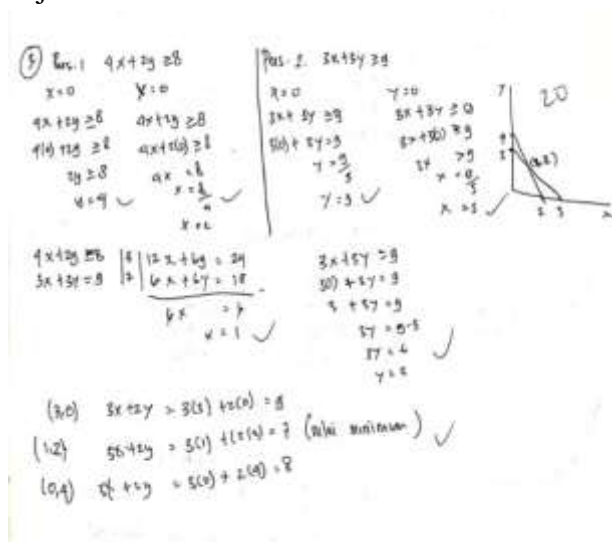 Pers. 1 4x+2y ≥8
x=0 y=0
4x+2y ≥8 4x+2y ≥8
4(0)+2y ≥8 4x+2(0) ≥8
2y ≥8 4x = 8
y=4 x = 8/4
x=2
Pers. 2. 3x+3y ≥9
x=0 y=0
3x+3y ≥9
3(0)+3y=9
y=3
x=3
20
y
4
3
(1,2)
2 3
x
4x+2y =8 |3| 12x+6y = 24
3x+3y=9 |2| 6x+6y = 18
6x = 6
x = 1
3x+3y=9
3(1)+3y=9
3+3y=9
3y = 9-3
3y = 6
y = 2
(3,0) 3x+2y = 3(3)+2(0) = 9
(1,2) 3x+2y = 3(1)+(2(2) = 7 (nilai minimum)
(0,4) 3x+2y = 3(0)+2(4) = 8